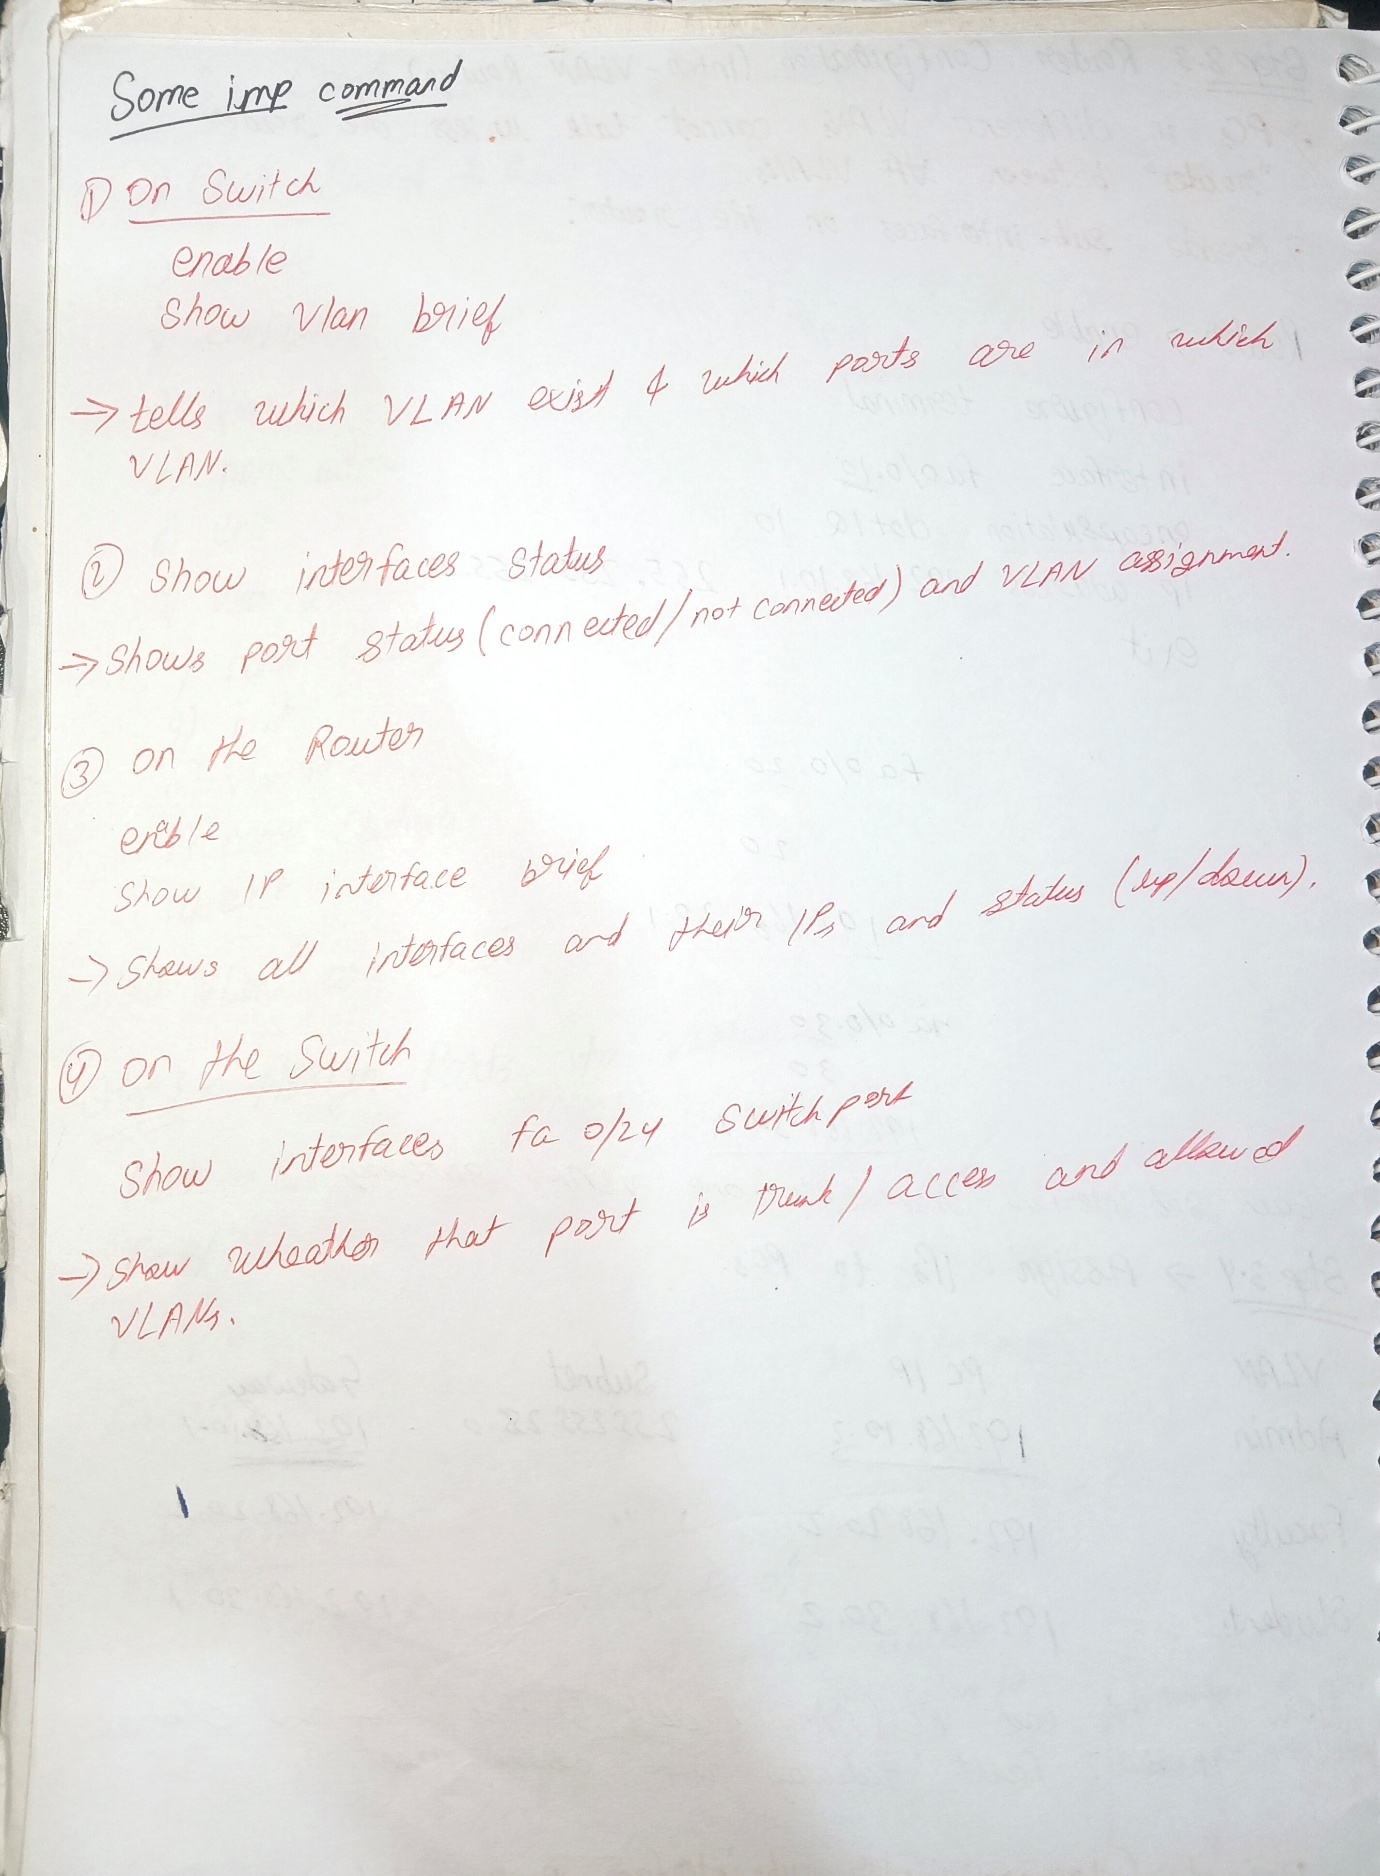 Some imp command
① On Switch
enable
Show Vlan brief
→ tells which VLAN exist & which ports are in which
VLAN.
② Show interfaces Status
→ Shows port status (connected/not connected) and VLAN assignment.
③ on the Router
enable
Show IP interface brief
→ Shows all interfaces and their IPs and status (up/down).
④ on the Switch
Show interfaces fa 0/24 Switchport
→ Show wheather that port is trunk/access and allowed
VLANs.